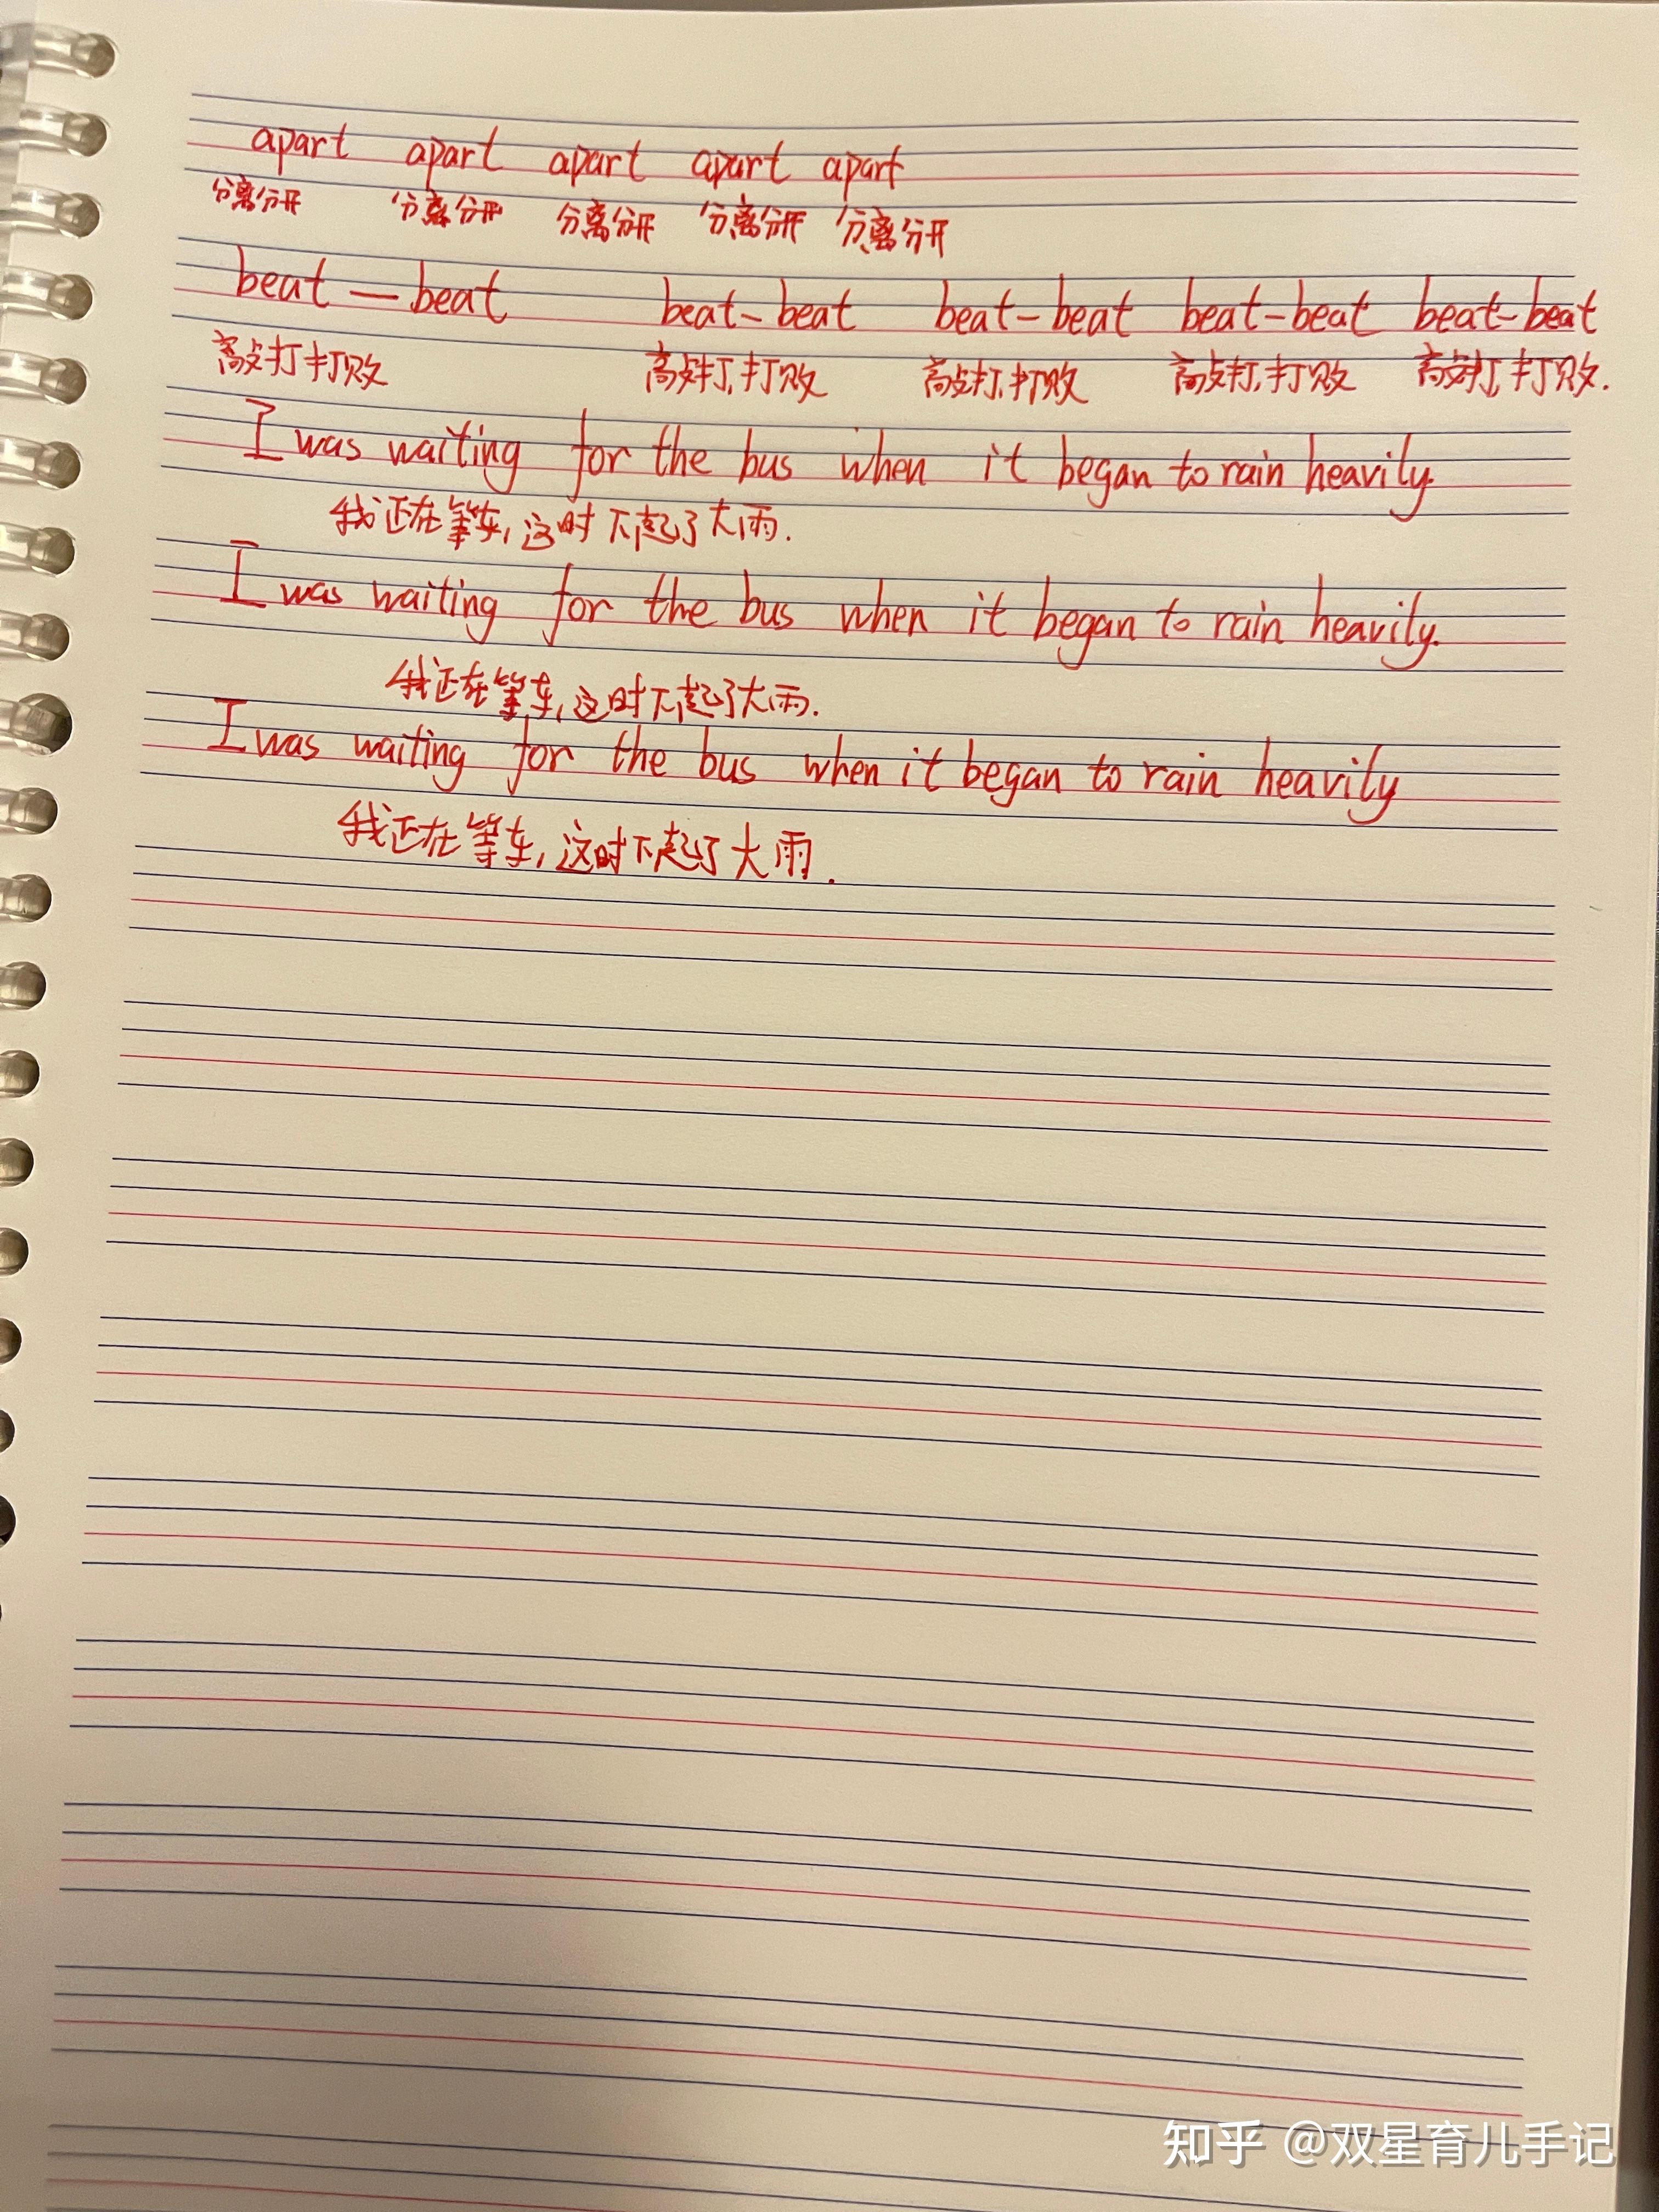 apart apart apart apart apart
分离分开 分离分开 分离分开 分离分开 分离分开
beat — beat beat - beat beat - beat beat - beat beat - beat
敲打打败 敲打,打败 敲打,打败 敲打,打败 敲打,打败.
I was waiting for the bus when it began to rain heavily.
我正在等车,这时下起了大雨.
I was waiting for the bus when it began to rain heavily.
我正在等车,这时下起了大雨.
I was waiting for the bus when it began to rain heavily
我正在等车,这时下起了大雨.
知乎 @双星育儿手记